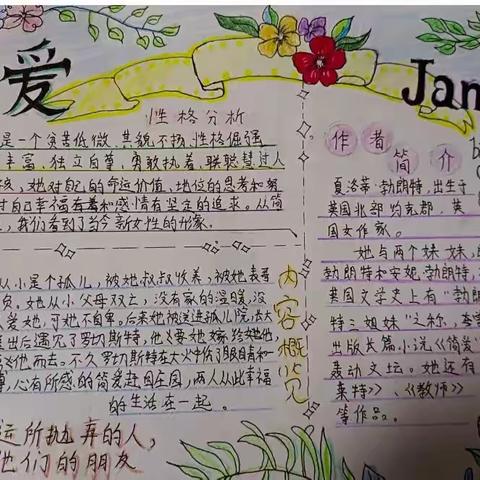 爱
Jan
性格分析
是一个贫苦低微、其貌不扬、性格倔强
丰富、独立自尊、勇敢执着、联聪慧过人
她对自己的命运价值、地位的思考和努
对自己幸福有着和感情有坚定的追求。从简
我们看到了当今新女性的形象。
从小是个孤儿，被她叔叔收养，被她表哥
负。她从小父母双亡，没有家的温暖，没
人爱她，可她不自卑。后来她被送进孤儿院，出去
出后遇见了罗切斯特，他又要她嫁给她他，
他而去。不久罗切斯特在大火中伤了眼自青和一
心有所感的简爱赶回庄园，两人从此幸福
的生活在一起。
内容概览
运所抛弃的人，
他们的朋友
作者
简介
夏洛蒂·勃朗特，出生于
英国北部约克郡，英
国女作家。
她与两个妹妹，
勃朗特和安妮·勃朗特，
英国文学史上有“勃朗
特三姐妹”之称，
出版长篇小说《简爱》
轰动文坛。她还有
莱特》、《教师》
等作品。